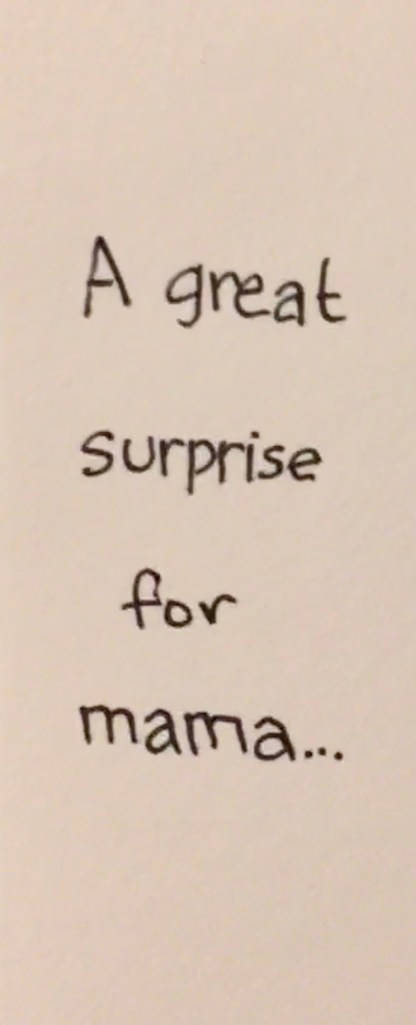 A great
surprise
for
mama...